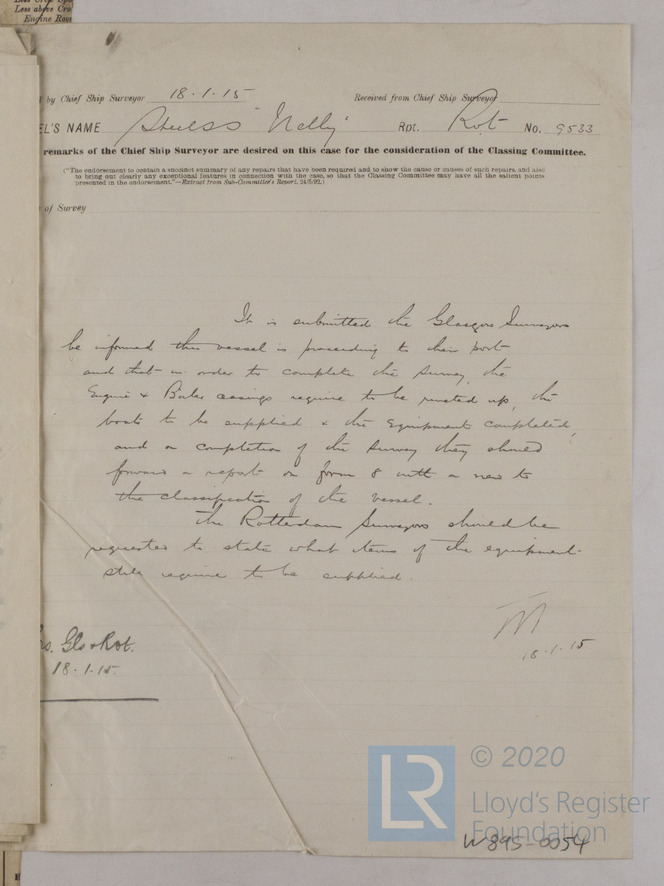 Less above Cro
Engine Roo
by Chief Ship Surveyor 18.1.15 Received from Chief Ship Surveyor
EL'S NAME Steel SS "Nelly" Rpt. Rot No. 9533
remarks of the Chief Ship Surveyor are desired on this case for the consideration of the Classing Committee.
("The endorsement to contain a succinct summary of any repairs that have been required and to show the cause or causes of such repairs, and also
to bring out clearly any exceptional features in connection with the case, so that the Classing Committee may have all the salient points
presented in the endorsement."—Extract from Sub-Committee's Report, 24/5/92.)
of Survey
It is submitted the Glasgow Surveyors
be informed this vessel is proceeding to their port
and that in order to complete the survey, the
Engine & Boiler casings require to be riveted up, the
boats to be supplied & the Equipment completed,
and on completion of the survey they should
forward a report on form 8 with a view to
the classification of the vessel.
The Rotterdam Surveyors should be
requested to state what items of the equipment
still require to be supplied.
18.1.15
Gls & Rot.
18.1.15
LR
© 2020
Lloyd's Register
Foundation
W895-0054